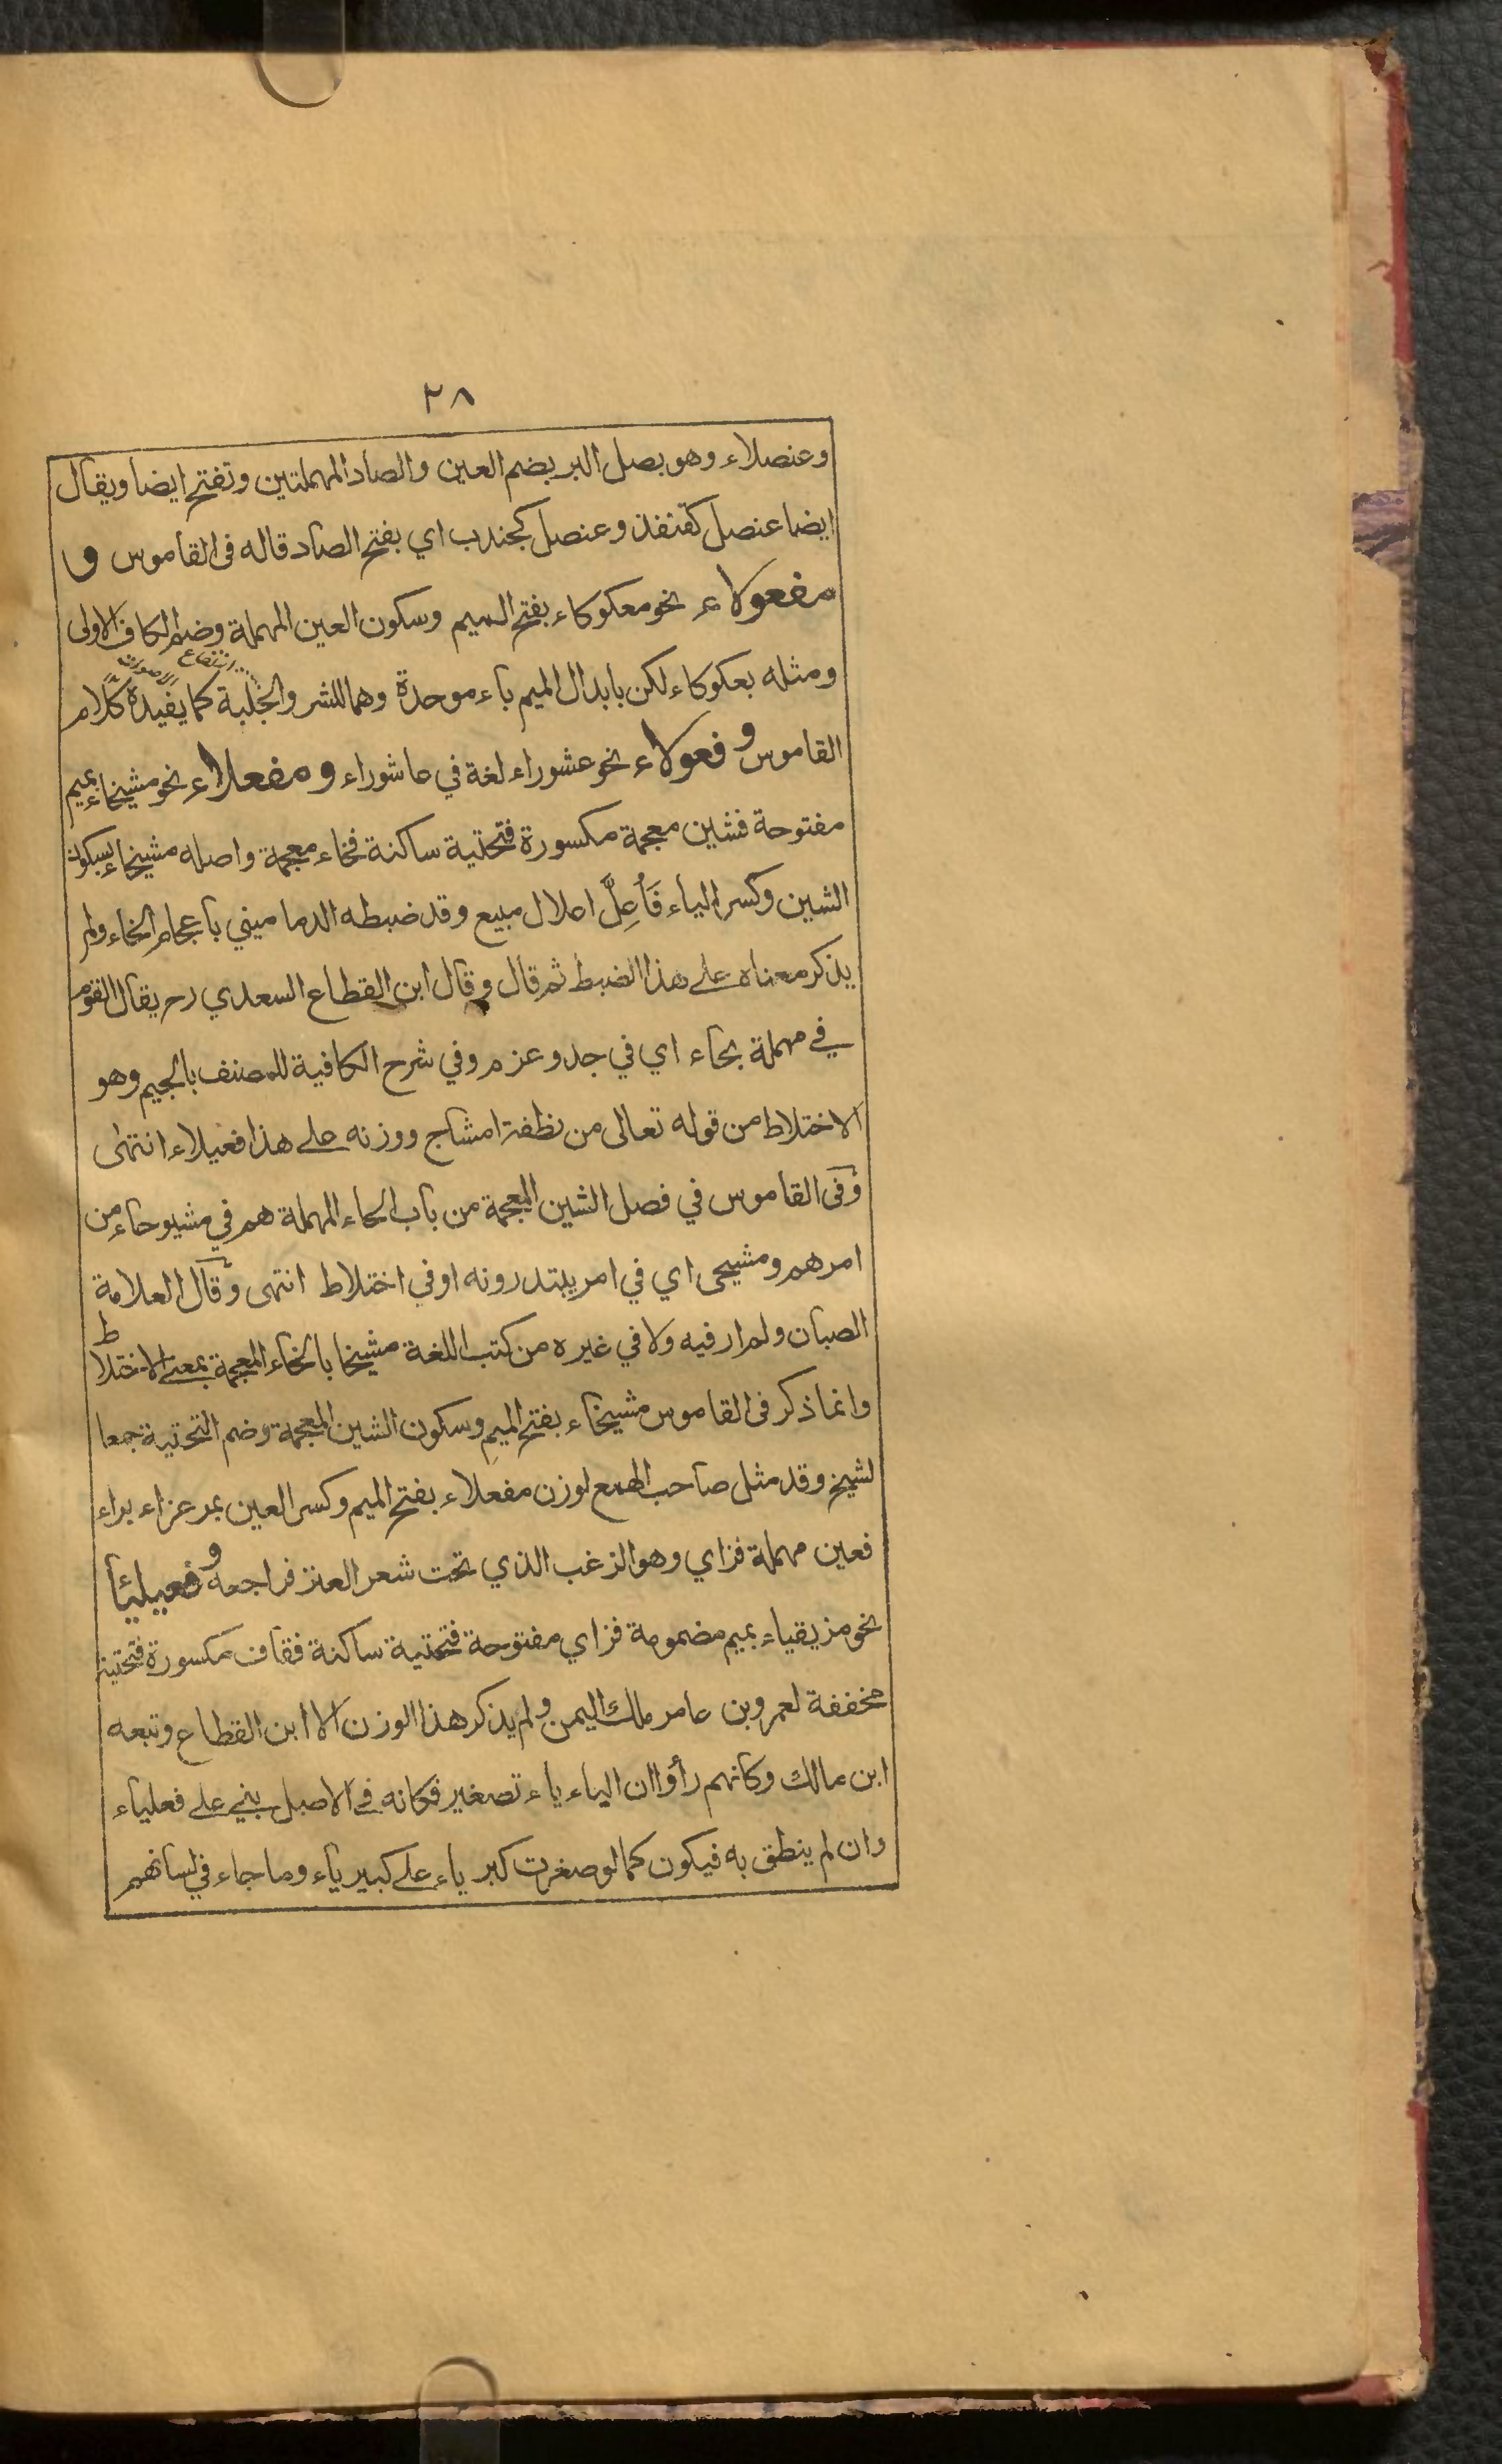 ٢٨
وعنصلاء وهو بصل البر بضم العين والصاد المهملتين وتفتح ايضا ويقال
ايضا عنصل كقنفذ وعنصل كجندب اي بفتح الصاد قاله فى القاموس و
مفعولاء نحو معكوكاء بفتح الميم وسكون العين المهملة وضم الكاف الاولى
ومثله بعكوكاء لكن بابدال الميم باء موحدة وهما للشر والجلبة كما يفيده كلام
القاموس وفعولاء نحو عشوراء لغة في عاشوراء ومفعلاء نحو مشيخاء بميم
مفتوحة فشين معجمة مكسورة فتحتية ساكنة فخاء معجمة واصله مشيخاء بسكون
الشين وكسر الياء فَأُعِلَّ اعلال مبيع وقد ضبطه الدماميني باعجام الخاء ولم
يذكر معناه على هذا الضبط ثم قال وقال ابن القطاع السعدي رح يقال القوم
في مهملة بحاء اي في جد وعزم وفي شرح الكافية للمصنف بالجيم وهو
الاختلاط من قوله تعالى من نطفة امشاج ووزنه على هذا فعيلاء انتهى
وفى القاموس في فصل الشين المعجمة من باب الحاء المهملة هم في مشيوحاء من
امرهم ومشيحى اي في امر يبتدرونه او في اختلاط انتهى وقال العلامة
الصبان ولم ار فيه ولا في غيره من كتب اللغة مشيخا بالخاء المعجمة بمعنى الاختلاط
وانما ذكر فى القاموس مشيخاء بفتح الميم وسكون الشين المعجمة وضم التحتية جمعا
لشيخ وقد مثل صاحب الهمع لوزن مفعلاء بفتح الميم وكسر العين بمرعزاء براء
فعين مهملة فزاي وهو الزغب الذي تحت شعر العنز فراجعه وفعيليأ
نحو مزيقياء بميم مضمومة فزاي مفتوحة فتحتية ساكنة فقاف مكسورة فتحتية
مخففة لعمرو بن عامر ملك اليمن ولم يذكر هذا الوزن الا ابن القطاع وتبعه
ابن مالك وكانهم رأوا ان الياء ياء تصغير فكانه في الاصل بني على فعلياء
وان لم ينطق به فيكون كما لو صغرت كبرياء على كبيرياء وما جاء في لسانهم